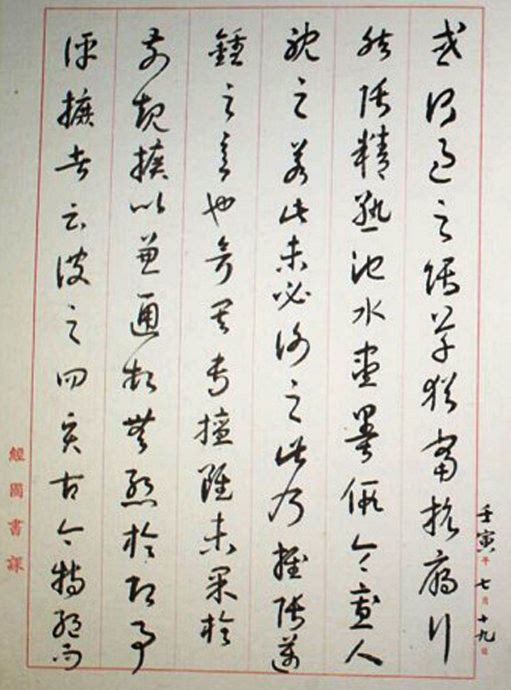 或謂過之張草猶當抗雁行
然張精熟池水盡墨假令寡人
耽之若此未必謝之此乃推張邁
鍾之意也考其專擅雖未果於
前規摭以兼通故無慚於即事
評摭者云彼之四賢古今特絕而
壬寅年七月十九日
經圖書課